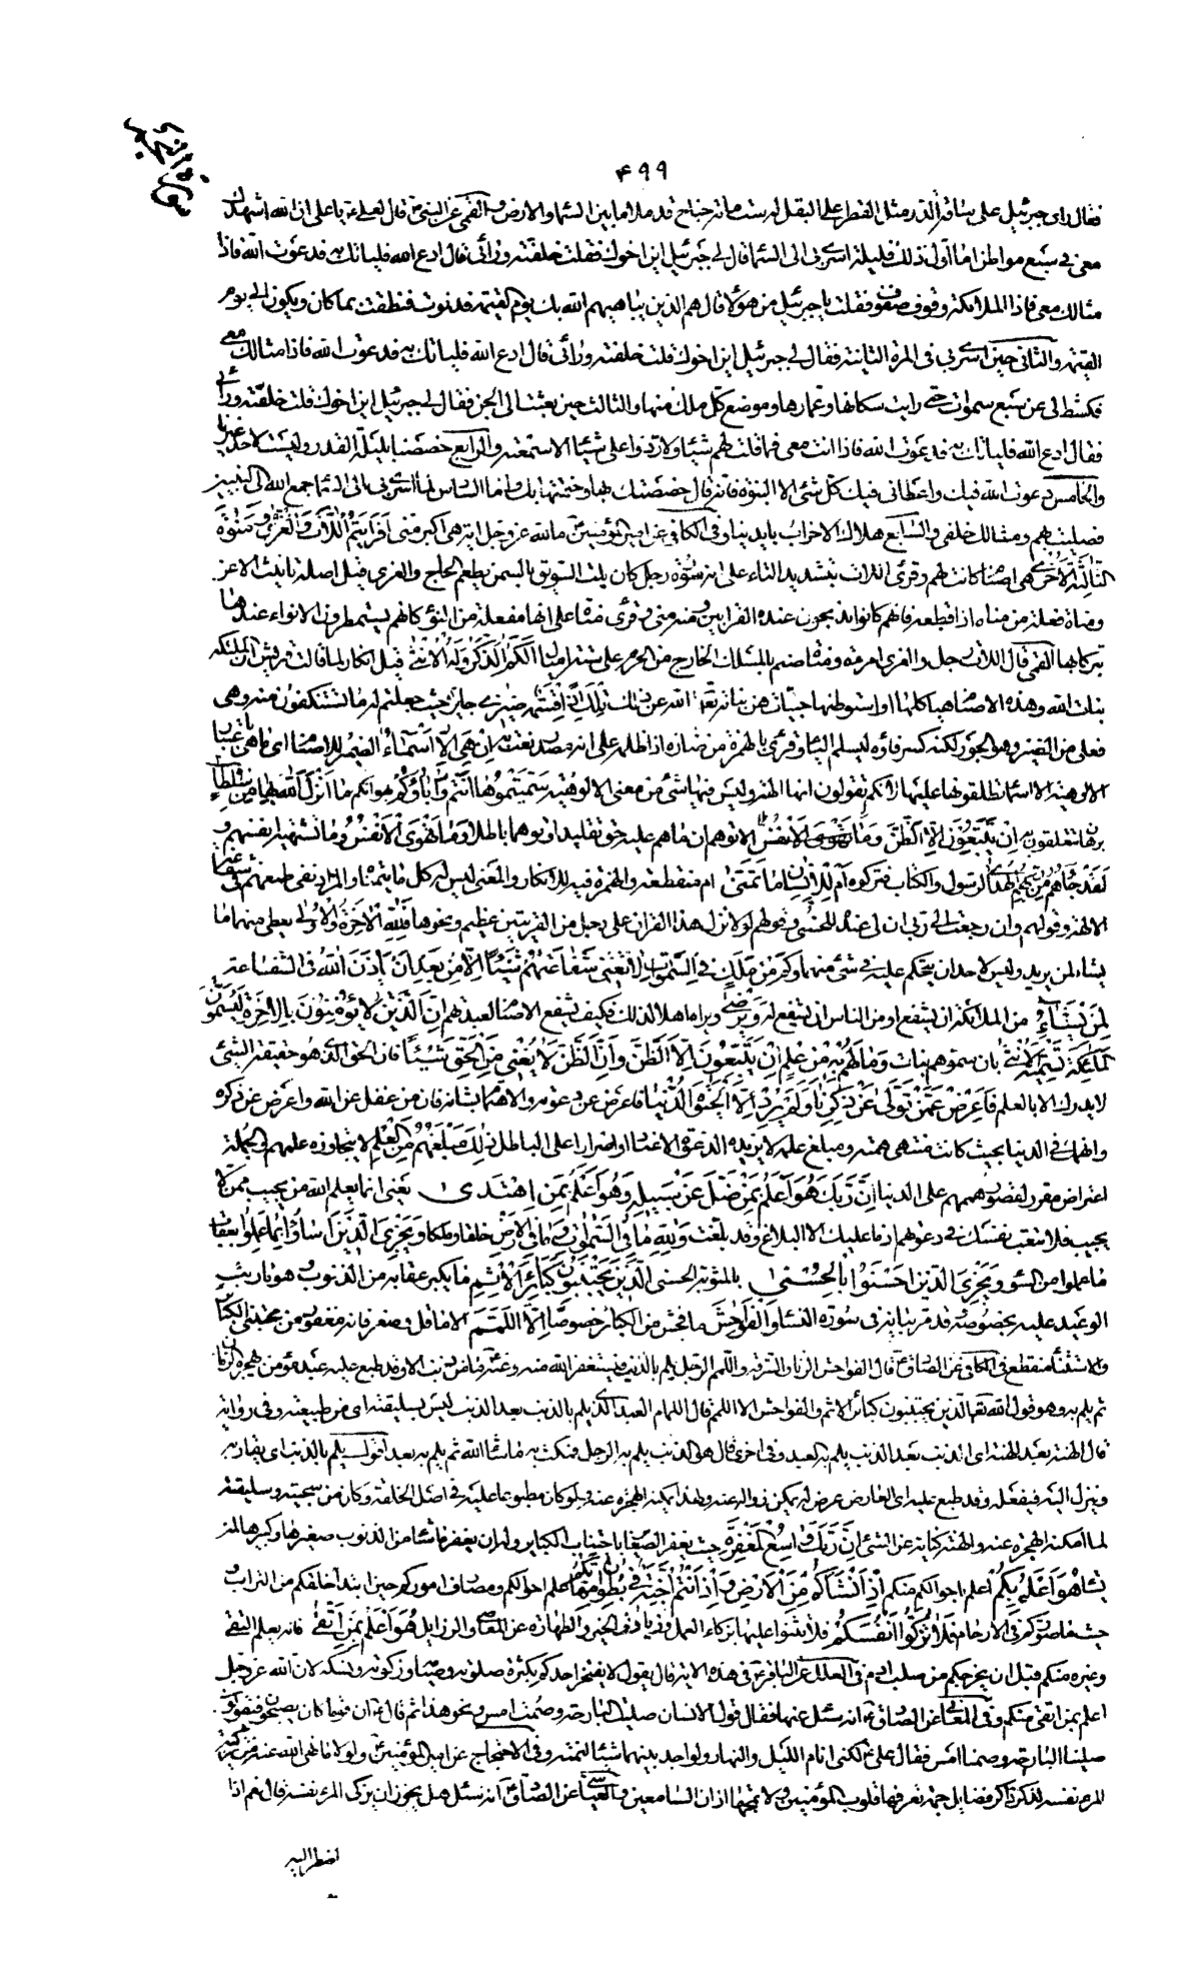 سورة النجم
۴۹۹
فقال رأى جبرئيل على ساقه الدر مثل القطر على البقل له ستمائة جناح قد ملأ ما بين السماء والارض والقمي عن النبي ص قال لعلي ع يا علي ان الله اشهدك
معي في سبع مواطن اما أول ذلك فليلة اسري بي الى السماء قال لي جبرئيل اين اخوك فقلت خلفته ورائي قال ادع الله فليأتك به فدعوت الله فاذا
مثالك معي فاذا الملائكة وقوف صفوف فقلت يا جبرئيل من هؤلاء قال هم الذين يباهيهم الله بك يوم القيمة فدنوت فنطقت بما كان ويكون الى يوم
القيمة والثاني حين اسري بي في المرة الثانية فقال لي جبرئيل اين اخوك قلت خلفته ورائي قال ادع الله فليأتك به فدعوت الله فاذا مثالك معي
فكشط لي عن سبع سموات حتى رايت سكانها وعمارها وموضع كل ملك منها والثالث حين بعثت الى الجن فقال لي جبرئيل اين اخوك قلت خلفته ورائي
فقال ادع الله فليأتك به فدعوت الله فاذا انت معي فما قلت لهم شيئا ولا ردوا علي شيئا الا سمعته والرابع خصصنا بليلة القدر وليست لاحد غيرنا
والخامس دعوت الله فيك واعطاني فيك كل شئ الا النبوة فانه قال خصصتك بها وختمتها بك واما السادس لما اسري بي الى السماء جمع الله لي النبيين
فصليت بهم ومثالك خلفي والسابع هلاك الاحزاب بايدينا وفي الكافي عن امير المؤمنين ع ما لله عز وجل اية هي اكبر مني أَفَرَأَيْتُمُ اللَّاتَ وَالْعُزَّى وَمَنٰوةَ
الثَّالِثَةَ الْأُخْرىٰ هي اصنام كانت لهم وقرئ اللات بتشديد التاء على انه صورة رجل كان يلت السويق بالسمن يطعم الحاج والعزى قيل اصلها تانيث الاعز
ومناة فعلة من مناه اذا قطعه فانهم كانوا يذبحون عنده القرابين ومنه منى وقرئ مناءة على انها مفعلة من النوء كانهم يستمطرون الانواء عندها
تبركا بها القمي قال اللات رجل والعزى امرءة ومناة صنم بالمشلل الخارج من الحرم على ستة اميال أَلَكُمُ الذَّكَرُ وَلَهُ الْأُنْثىٰ قيل انكار لما قالت قريش ان الملئكة
بنات الله وهذه الاصنام هياكلها او استوطنها جنيات هن بناته تعالى الله عن ذلك تِلْكَ إِذًا قِسْمَةٌ ضِيزىٰ جائرة حيث جعلتم له ما تستنكفون منه وهي
فعلى من الضيز وهو الجور لكنه كسر فاؤه ليسلم الياء وقرئ بالهمزة من ضأزه اذا ظلمه على انه مصدر نعت به إِنْ هِيَ إِلّٰا أَسْمٰاءٌ الضمير للاصنام اي ما هي باعتبار
الالوهية الا اسماء تطلقونها عليها لانكم تقولون انها الهة وليس فيها شئ من معنى الالوهية سَمَّيْتُمُوهٰا أَنْتُمْ وَآبٰاؤُكُمْ بهواكم مٰا أَنْزَلَ اللّٰهُ بِهٰا مِنْ سُلْطٰانٍ
برهان تتعلقون به إِنْ يَتَّبِعُونَ إِلَّا الظَّنَّ وَمٰا تَهْوَى الْأَنْفُسُ الا توهم ان ما هم عليه حق تقليدا وتوهما باطلا وَمٰا تَهْوَى الْأَنْفُسُ وما تشتهيه انفسهم و
لَقَدْ جٰاءَهُمْ مِنْ رَبِّهِمُ الْهُدىٰ الرسول والكتاب فتركوه أَمْ لِلْإِنْسٰانِ مٰا تَمَنّٰى ام منقطعة والهمزة فيه للانكار والمعنى ليس له كل ما يتمناه والمراد نفي طمعهم في شفاعة
الالهة وقولهم وان رجعت الى ربي ان لي عنده للحسنى وقولهم لولا نزل هذا القرآن على رجل من القريتين عظيم ونحوها فَلِلّٰهِ الْآخِرَةُ وَالْأُولىٰ يعطي منهما ما
يشاء لمن يريد وليس لاحد ان يتحكم عليه في شئ منهما وَكَمْ مِنْ مَلَكٍ فِي السَّمٰوٰاتِ لٰا تُغْنِي شَفٰاعَتُهُمْ شَيْئًا إِلّٰا مِنْ بَعْدِ أَنْ يَأْذَنَ اللّٰهُ في الشفاعة
لِمَنْ يَشٰاءُ من الملائكة ان يشفع او من الناس ان يشفع له وَيَرْضىٰ ويراه اهلا لذلك فكيف يشفع الاصنام لعبدتهم إِنَّ الَّذِينَ لٰا يُؤْمِنُونَ بِالْآخِرَةِ لَيُسَمُّونَ
الْمَلٰائِكَةَ تَسْمِيَةَ الْأُنْثىٰ بان سموهم بنات وَمٰا لَهُمْ بِهِ مِنْ عِلْمٍ إِنْ يَتَّبِعُونَ إِلَّا الظَّنَّ وَإِنَّ الظَّنَّ لٰا يُغْنِي مِنَ الْحَقِّ شَيْئًا فان الحق الذي هو حقيقة الشئ
لا يدرك الا بالعلم فَأَعْرِضْ عَمَّنْ تَوَلّٰى عَنْ ذِكْرِنٰا وَلَمْ يُرِدْ إِلَّا الْحَيٰوةَ الدُّنْيٰا فاعرض عن دعوته والاهتمام بشانه فان من غفل عن الله واعرض عن ذكره
وانهمك في الدنيا بحيث كانت منتهى همته ومبلغ علمه لا يزيده الدعوة الا عنادا واصرارا على الباطل ذٰلِكَ مَبْلَغُهُمْ مِنَ الْعِلْمِ لا يتجاوزه علمهم والجملة
اعتراض مقرر لقصور هممهم على الدنيا إِنَّ رَبَّكَ هُوَ أَعْلَمُ بِمَنْ ضَلَّ عَنْ سَبِيلِهِ وَهُوَ أَعْلَمُ بِمَنِ اهْتَدىٰ يعني انما يعلم الله من يجيب ممن لا
يجيب فلا تتعب نفسك في دعوتهم اذ ما عليك الا البلاغ وقد بلغت وَلِلّٰهِ مٰا فِي السَّمٰوٰاتِ وَمٰا فِي الْأَرْضِ خلقا وملكا وَيَجْزِيَ الَّذِينَ أَسٰاؤُا بِمٰا عَمِلُوا بعقاب
ما عملوا من السوء وَيَجْزِيَ الَّذِينَ أَحْسَنُوا بِالْحُسْنَى بالمثوبة الحسنى الَّذِينَ يَجْتَنِبُونَ كَبٰائِرَ الْإِثْمِ ما يكبر عقابه من الذنوب وهو ما رتب
الوعيد عليه بخصوصه وقد مر بيانه في سورة النساء وَالْفَوٰاحِشَ ما فحش من الكبائر خصوصا إِلَّا اللَّمَمَ الا ما قل وصغر فانه مغفور من مجتنبي الكبائر
والاستثناء منقطع في الكافي عن الصادق ع قال الفواحش الزنا والسرقة واللمم الرجل يلم بالذنب فيستغفر الله منه وعنه ع ما من ذنب الا وقد طبع عليه عبد مؤمن يهجره الزمان
ثم يلم به وهو قول الله تعالى الذين يجتنبون كبائر الاثم والفواحش الا اللمم قال اللمام العبد الذي يلم بالذنب بعد الذنب ليس بسليقته اي من طبيعته وفي رواية
قال الهنة بعد الهنة اي الذنب بعد الذنب يلم به العبد وفي اخرى قال هو الذنب يلم به الرجل فمكث به ما شاء الله ثم يلم به بعد اقول يلم بالذنب اي يقاربه
وينزل اليه فيفعله وقد طبع عليه اي لعارض عرض له يمكن زواله عنه ولهذا يمكنه الهجرة عنه ولو كان مطبوعا عليه في اصل الخلقة وكان من سجيته وسليقته
لما امكنه الهجرة عنه والهنة كناية عن الشئ إِنَّ رَبَّكَ وٰاسِعُ الْمَغْفِرَةِ حيث يغفر الصغائر باجتناب الكبائر وله ان يغفر ما شاء من الذنوب صغيرها وكبيرها لمن
يشاء هُوَ أَعْلَمُ بِكُمْ اعلم باحوالكم منكم إِذْ أَنْشَأَكُمْ مِنَ الْأَرْضِ وَإِذْ أَنْتُمْ أَجِنَّةٌ فِي بُطُونِ أُمَّهٰاتِكُمْ علم احوالكم ومصارف اموركم حين ابتدأ خلقكم من التراب و
حيث ما صوركم في الارحام فَلٰا تُزَكُّوا أَنْفُسَكُمْ فلا تثنوا عليها بزكاء العمل وزيادة الخير والطهارة عن المعاصي والرذايل هُوَ أَعْلَمُ بِمَنِ اتَّقىٰ فانه يعلم التقي
وغيره منكم قبل ان يخرجكم من صلب ادم في العلل عن الباقر ع في هذه الاية قال يقول لا يفتخر احدكم بكثرة صلوته وصيامه وزكوته ونسكه لان الله عز وجل
اعلم بمن اتقى منكم وفي المعاني عن الصادق ع انه سئل عنها فقال قول الانسان صليت البارحة وصمت امس ونحو هذا ثم قال ع ان قوما كان يصبحون فيقولون
صلينا البارحة وصمنا امس فقال علي ع لكني انام الليل والنهار ولو اجد بينهما شيئا لنمته وفي الاحتجاج عن امير المؤمنين ع ولولا ما نهى الله عنه من تزكية
المرء نفسه لذكر ذاكر فضايل جمة تعرفها قلوب المؤمنين ولا تمجها اذان السامعين والعياشي عن الصادق ع انه سئل هل يجوز ان يزكي المرء نفسه قال نعم اذا
اضطر اليه